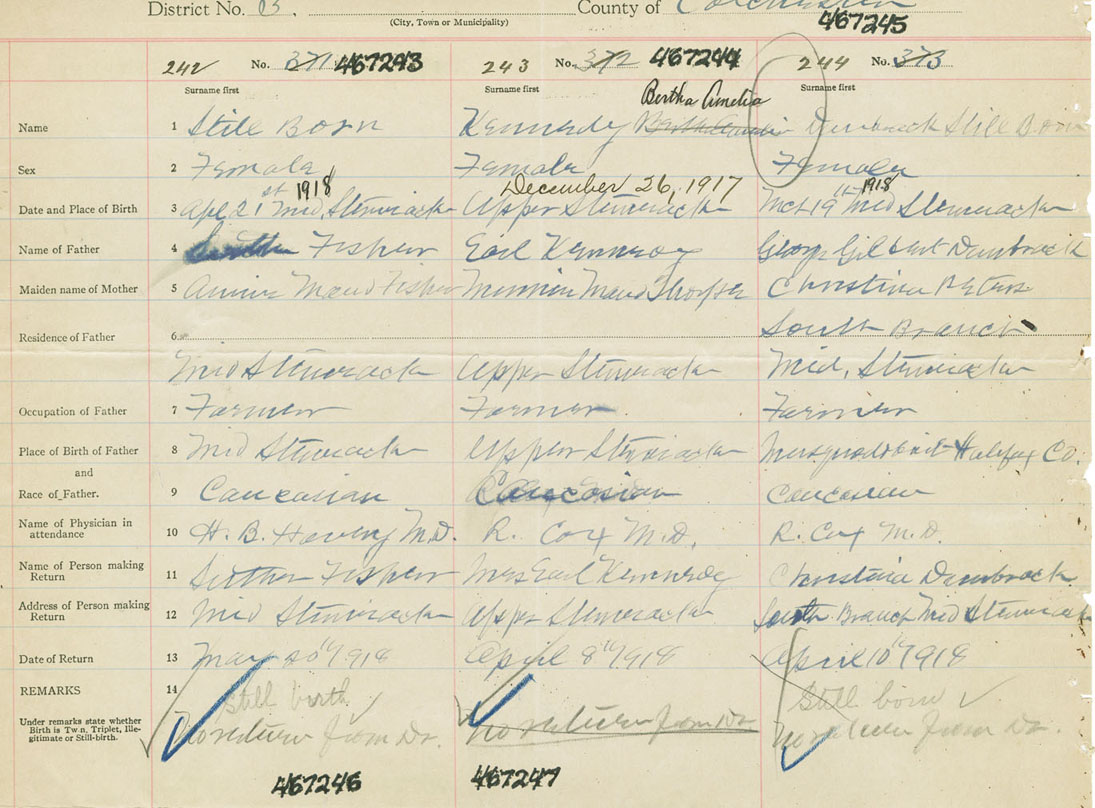 District No. 13. County of Colchester
(City, Town or Municipality)
467245
242 No. 371 467243 243 No. 372 467244 244 No. 373
Surname first Surname first Surname first
Bertha Amelia
Name 1 Still Born Kennedy Dunbrack Still Born
Sex 2 Female Female Female
st 1918 December 26, 1917 1918
Date and Place of Birth 3 Apl 21 Mid Stewiacke Upper Stewiacke Mch 19 Mid Stewiacke
Name of Father 4 Fisher Earl Kennedy George Gilbert Dunbrack
Maiden name of Mother 5 Annie Maud Fisher Minnie Maud Christina Peters
South Branch
Residence of Father 6
Mid Stewiacke Upper Stewiacke Mid. Stewiacke
Occupation of Father 7 Farmer Farmer Farmer
Place of Birth of Father 8 Mid Stewiacke Upper Stewiacke Musquodoboit Halifax Co.
and
Race of Father. 9 Caucasian Caucasian Caucasian
Name of Physician in
attendance 10 H. B. M.D. R. Cox M.D. R. Cox M.D.
Name of Person making
Return 11 Luther Fisher Mrs Earl Kennedy Christina Dunbrack
Address of Person making
Return 12 Mid Stewiacke Upper Stewiacke South Branch Mid Stewiacke
Date of Return 13 May 20th 1918 April 8th 1918 April 10th 1918
REMARKS 14 Still birth Still born
Under remarks state whether
Birth is Twin, Triplet, Ille-
gitimate or Still-birth.
No return from Dr. No return from Dr. No return from Dr.
467246 467247